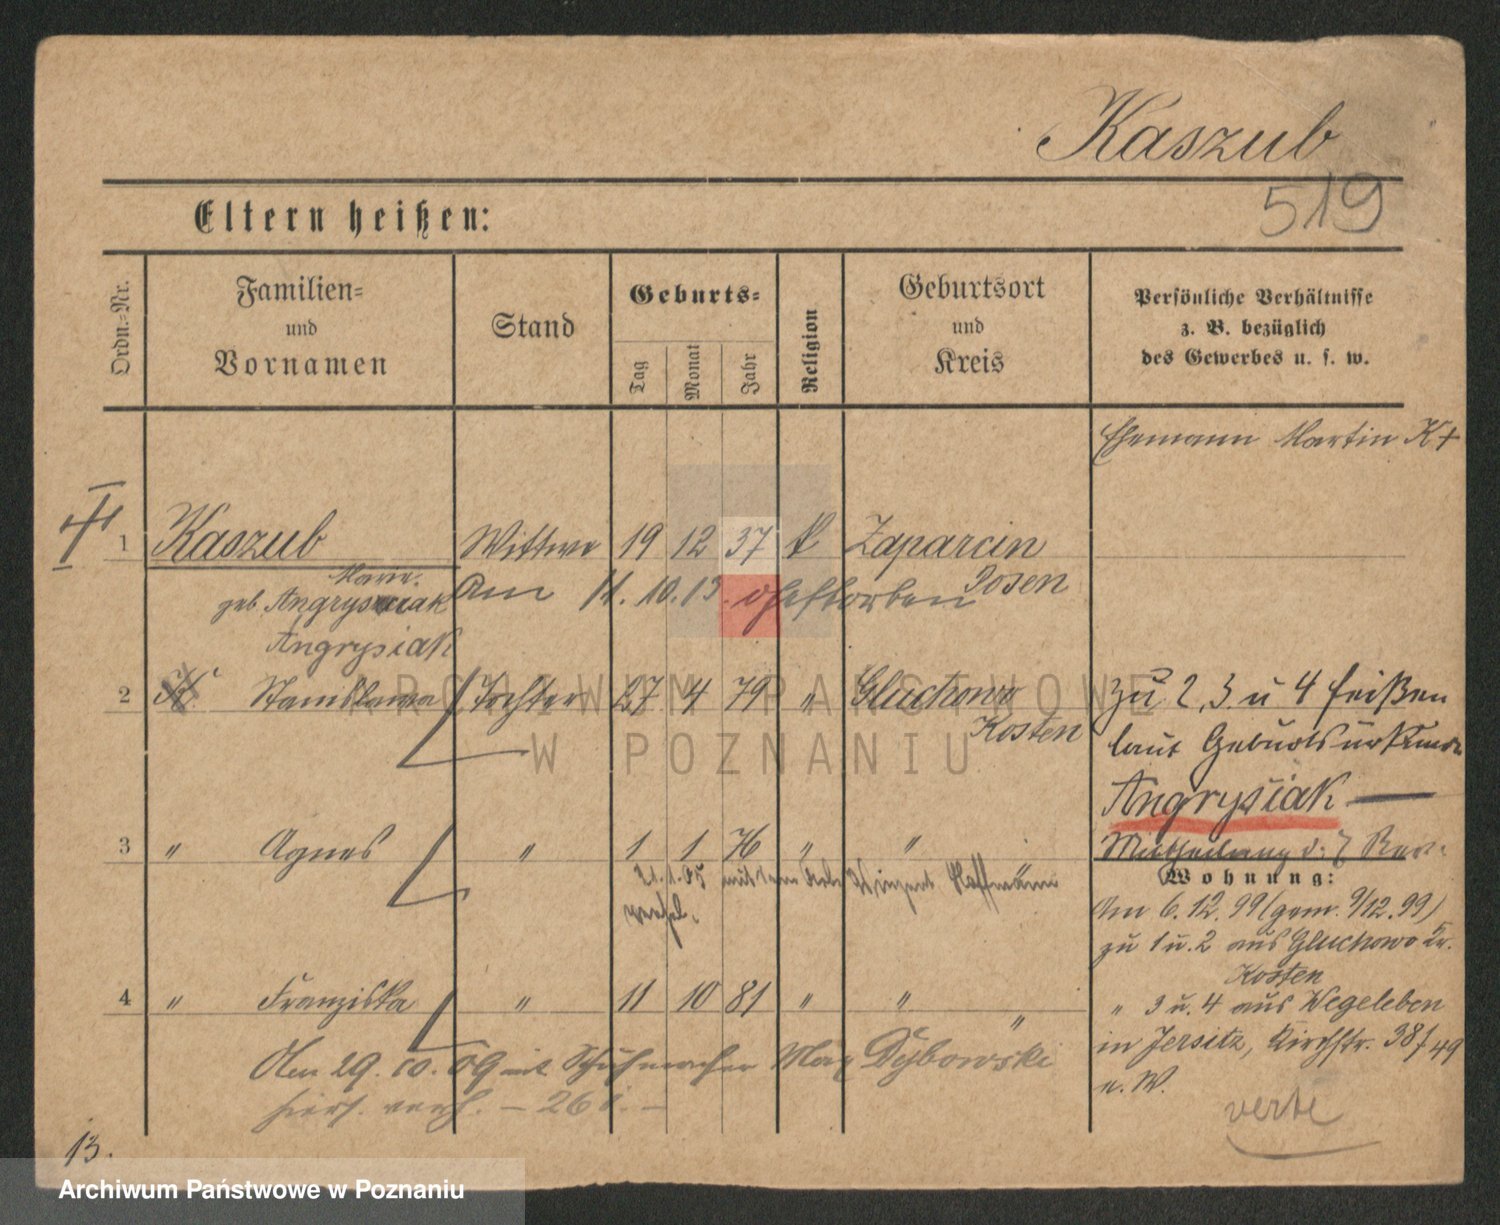 Kaszub
519
Eltern heißen:
Ordn.-Nr.
Familien-
und
Vornamen
Stand
Geburts-
Tag
Monat
Jahr
Religion
Geburtsort
und
Kreis
Persönliche Verhältnisse
z. B. bezüglich
des Gewerbes u. s. w.
Ehemann Martin K+
1 Kaszub Wittwe 19 12 37 k Zaparcin
Marie
geb. Angrysiak Am 11. 10. 13. gestorben Posen
Angrysiak
2 K Stanislawa Tochter 27 4 79 " Gluchowo
Kosten
zu 2, 3 u 4 heißen
laut Geburtsurkunde
Angrysiak —
3 " Agnes " 1 1 76 " "
Mittheilung d. 7 Rev.
Wohnung:
Am 6. 12. 99 (gem. 9/12. 99)
zu 1 u. 2 aus Gluchowo Kr.
Kosten
4 " Franziska " 11 10 81 " " "
" 3 u. 4 aus Wegeleben
in Jersitz, Kirchstr. 38/49
u. W.
Am 29. 10. 09 mit Schuhmacher Max Dybowski
hiers. verh. — 261. —
verte
13.
ARCHIWUM PAŃSTWOWE
W POZNANIU
Archiwum Państwowe w Poznaniu